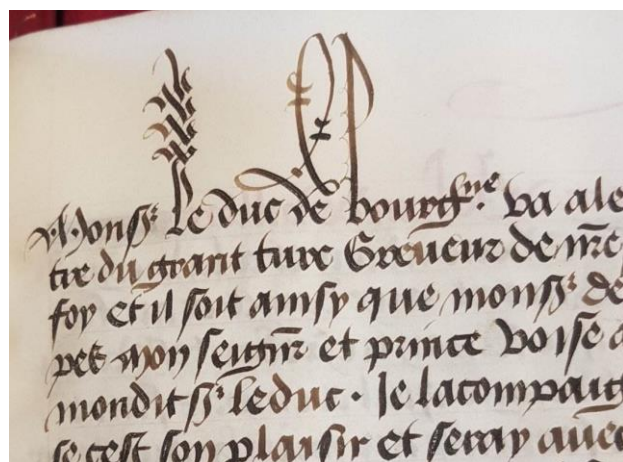 Monsr le duc de bourgne va ale
tre du grant turc Greueur de nre
foy et il soit ainsy que monsr de
pes mon seignr et prince voise a
mondit sr le duc. Je lacompaig
se cest son plaisir et seray auec